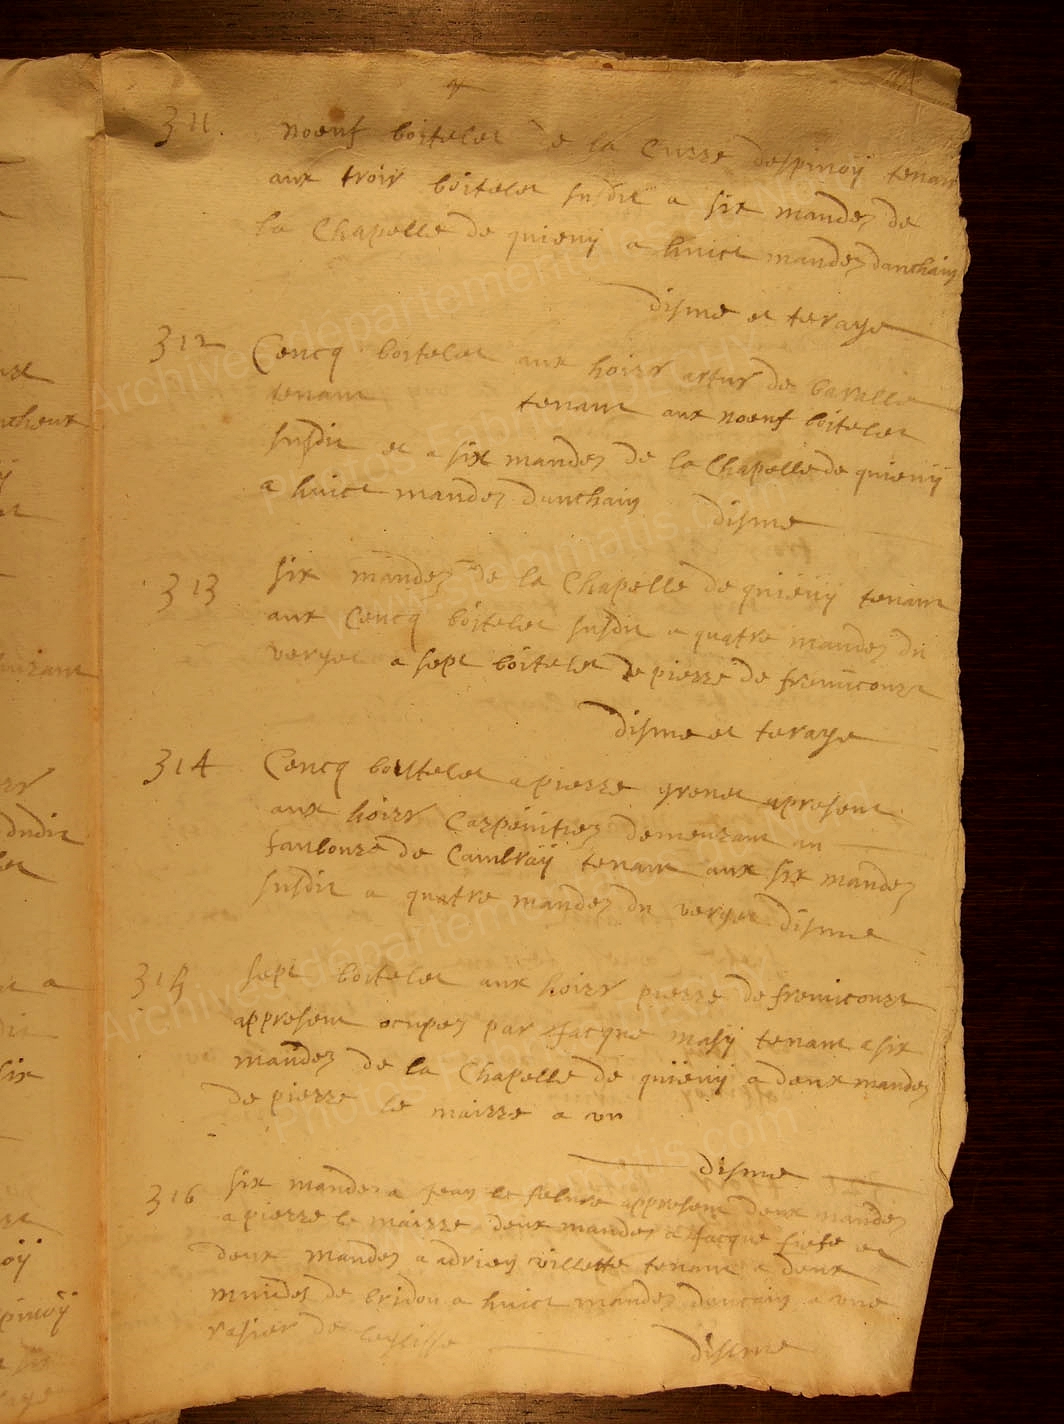 311. noeuf boitelet de la Curre despinoÿ tenan
aux trois boitelet susdit a six mandez de
la Chapelle de quievij a huict mandez danchain
disme et teraye
312 Cencq boitelet aux hoirs artus de baralle
tenant tenant aux noeuf boitelet
susdit et a six mandez de la Chapelle de quievij
a huict mandez danchain disme
313 six mandez de la Chapelle de quievij tenant
aux Cencq boitelet susdit a quatre mandez du
verget a sept boitelet de pierre de fremicourt
disme et teraye
314 Cencq boittelet a pierre grenet apresent
aux hoirs Carpentiez demeurant au
faubourg de Cambraÿ tenant aux six mandez
susdit a quatre mandez du verget disme
315 sept boitelet aux hoirs pierre de fremicourt
appresent ocupez par Jacque masij tenant a six
mandez de la Chapelle de quievij a deux mandez
de pierre le mairre a un
disme
316 six mandez a Jean le febure appresent deux mandez
a pierre le mairre deux mandez a Jacque et
deux mandez a adrien villette tenant a deux
muides de bridou a huict mandez dancain a une
rasier de leglisse disme